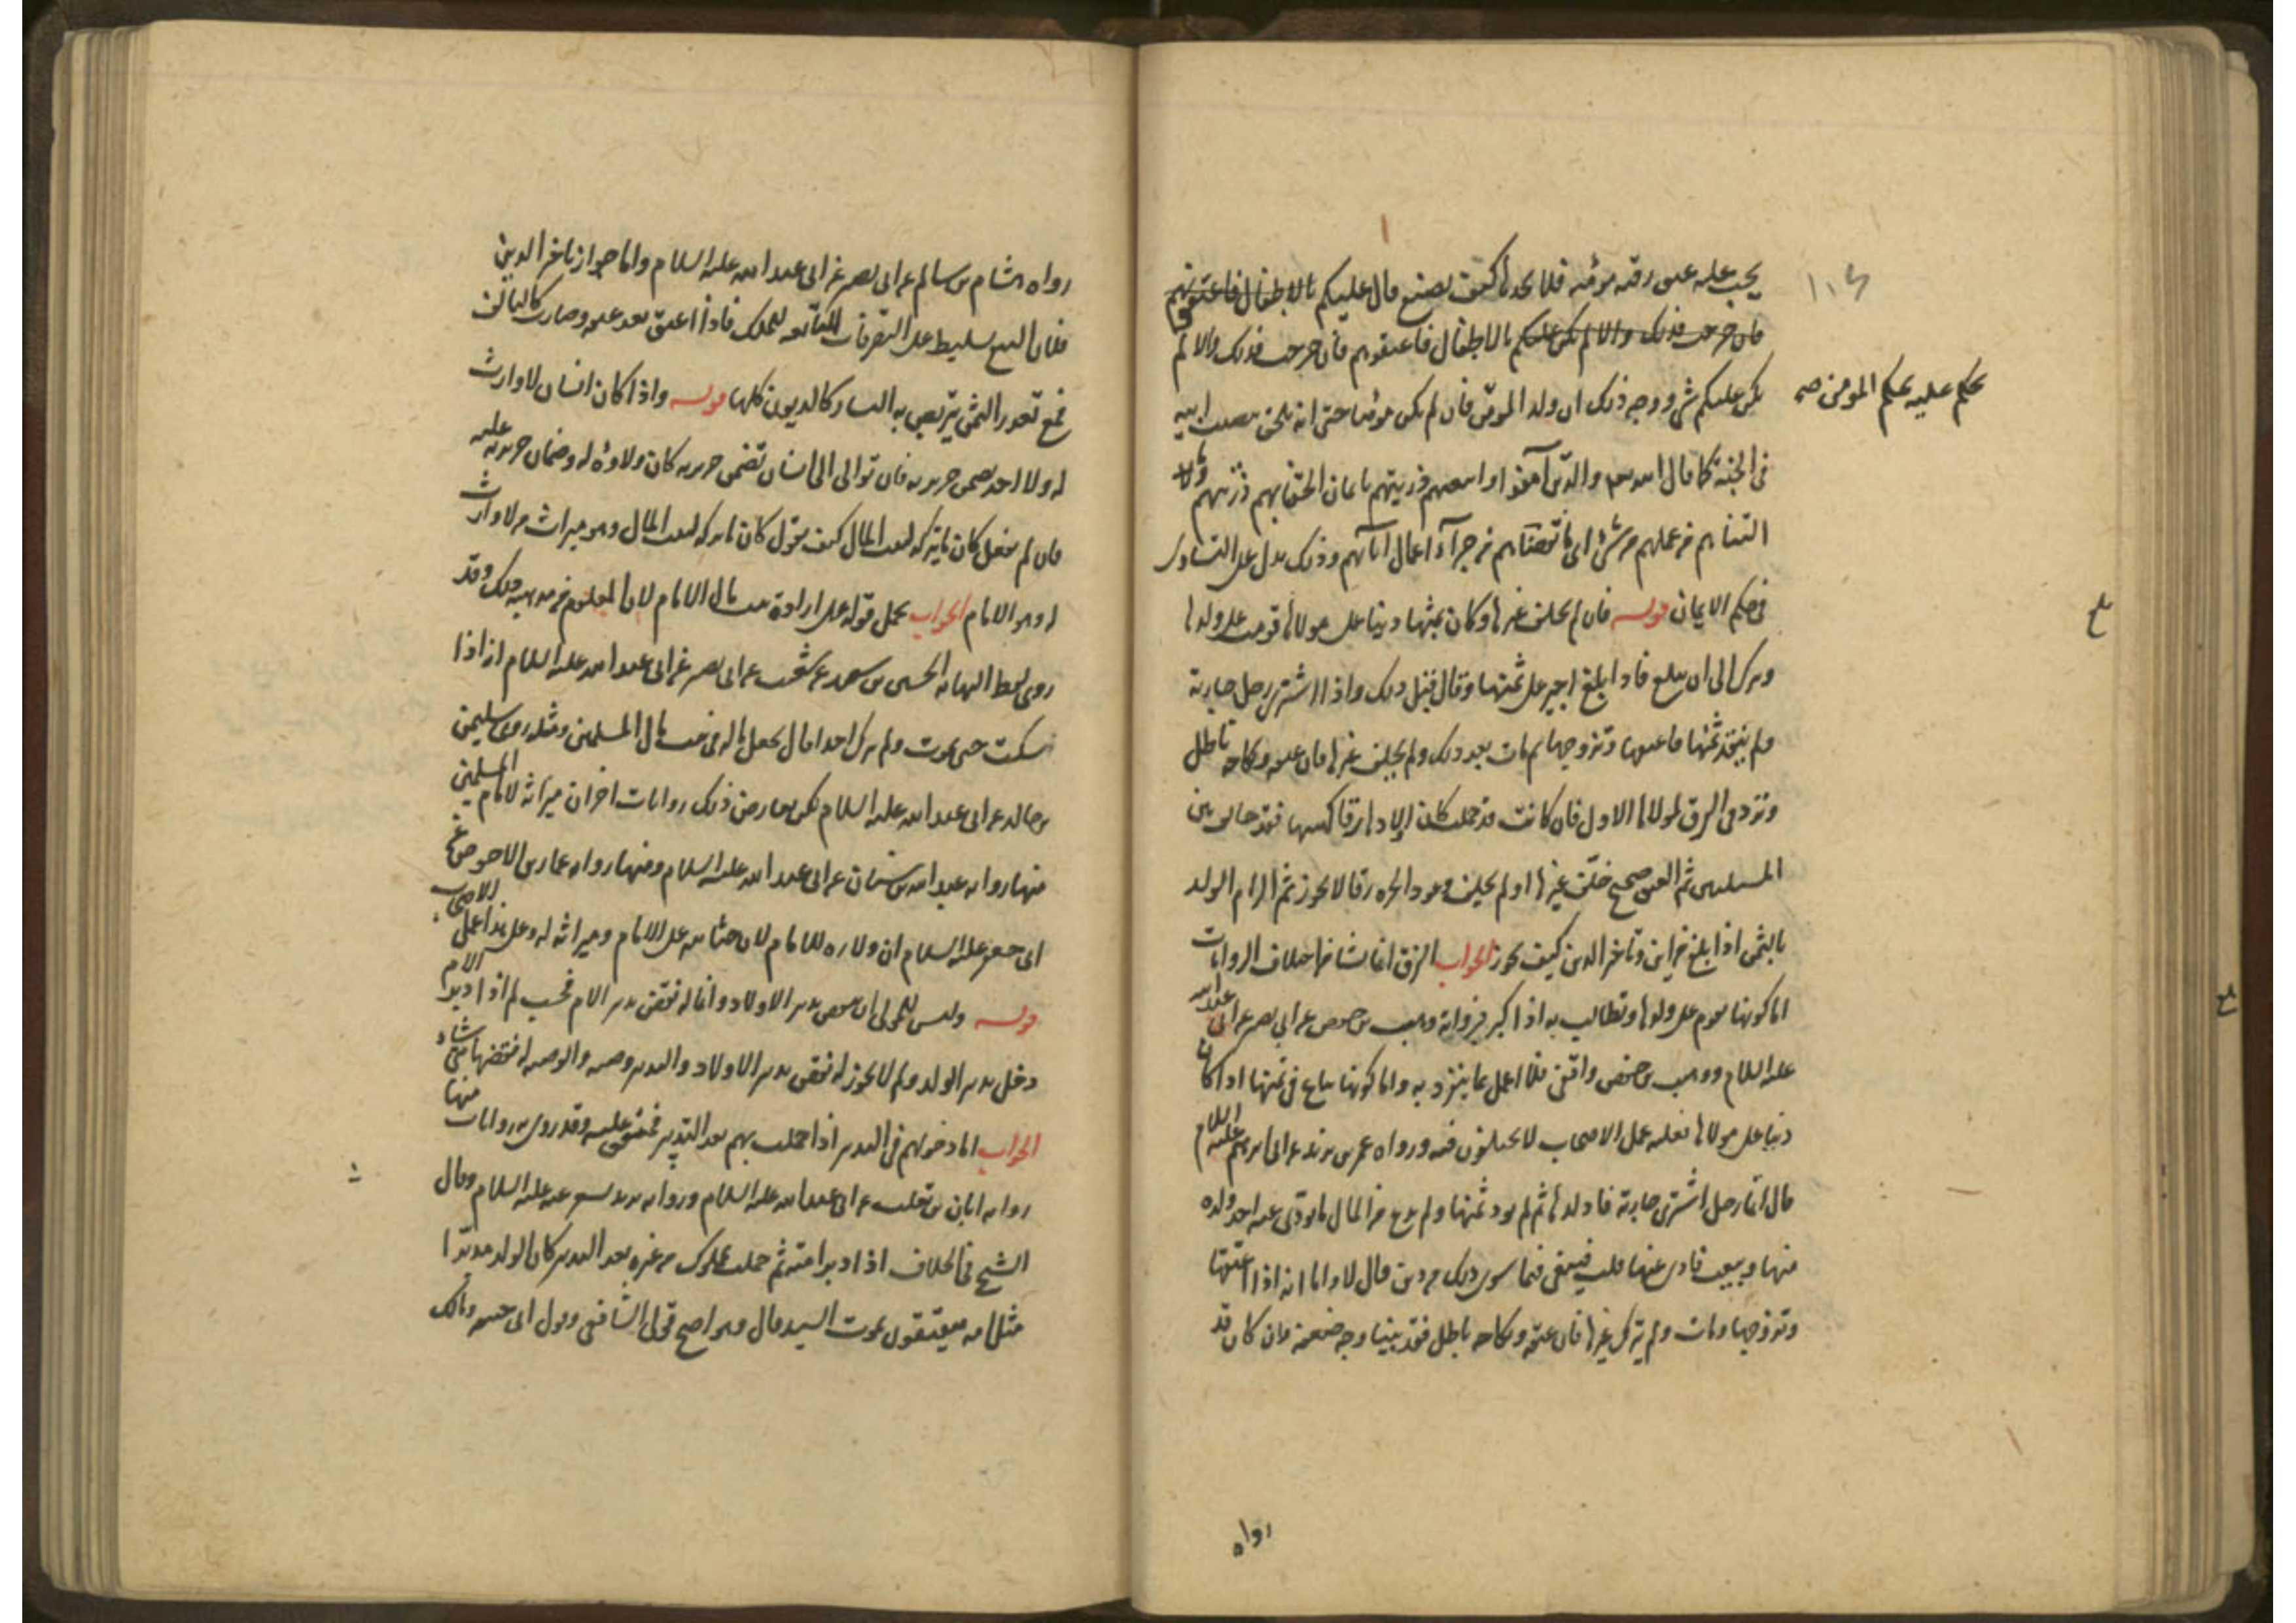 يجب عليه عتق رقبة مؤمنة فلا يجدها كيف يصنع قال عليكم بالاطفال فاعتقوهم
فان خرجت فذلك والا لم يكن عليكم بالاطفال فاعتقوهم فان خرجت فذلك والا لم
يكن عليكم شي ووجه ذلك ان ولد المؤمن فان لم يكن مؤمنا حتى انه يلحق بابيه
يحكم عليه بحكم المؤمن صح
في الجنة كما قال الله والذين آمنوا واتبعتهم ذريتهم بايمان الحقنا بهم ذريتهم وما
التناهم من عملهم من شئ اي ما نقصناهم من جزاء اعمال آبائهم وذلك يدل على التساوي
في حكم الايمان قوله فان لم يخلف غيرها وكان ثمنها دينا على مولاها قومت على ولدها
ويترك الى ان يبلغ فاذا بلغ اجبر على ثمنها وقال قبل ذلك واذا اشترى رجل جارية
ولم ينقد ثمنها فاعتقها وتزوجها ثم مات بعد ذلك ولم يخلف غيرها فان عتقه ونكاحه باطل
وترد في الرق لمولاها الاول فان كانت قد حملت كان اولادها رقا كهيئتها فقد خالف بين
المسئلتين ثم العتق صحيح خلف غيرها او لم يخلف وعود الحرة رقا لا يجوز ثم الزام الولد
بالثمن اذا بلغ من اين وتاخر الدين كيف يجوز الجواب الفرق انما نشا من اختلاف الروايات
اما كونها تقوم على ولدها وتطالب به اذا كبر فرواية وهيب بن حفص عن ابي بصير عن ابي عبد الله
عليه السلام ووهيب بن حفص واقفي فلا اعمل بما ينفرد به واما كونها تباع في ثمنها اذا كان
دينا على مولاها فعليه عمل الاصحاب لا يختلفون فيه ورواه عمر بن يزيد عن ابي ابرهيم عليه السلام
قال ايما رجل اشترى جارية فاولدها ثم لم يود ثمنها ولم يدع من المال ما يودى عنه اخذ ولده
منها وبيعت فادى عنها قلت فيبعن فيما سوى ذلك من دين قال لا واما انه اذا اعتقها
وتزوجها ومات ولم يترك غيرها فان عتقه ونكاحه باطل فقد بينا وجه ضعفه وان كان قد
رواه
رواه هشام بن سالم عن ابي بصير عن ابي عبد الله عليه السلام واما جواز تاخر الدين
فلان البيع تسليط على التصرفات التابعة للملك فاذا اعتق نفذ عتقه وصارت كالتالف
فمع تعذر الثمن يتربص به اليسار كالديون كلها قوله واذا كان انسان لا وارث
له ولا احد يضمن جريرته فان توالى الى انسان تضمن جريرته كان ولاؤه له وضمان جريرته عليه
فان لم يفعل كان ما يتركه لبيت المال كيف يقول كان ما يتركه لبيت المال وهو ميراث من لا وارث
له وهو الامام الجواب يحمل قوله على ارادة بيت مال الامام لان المعلوم من مذهبه ذلك وقد
روى بهذا اللفظ النهاية الحسين بن سعيد عن شعيب عن ابي بصير عن ابي عبد الله عليه السلام انه اذا
سكت حتى يموت ولم يترك احدا قال يجعل ماله في بيت مال المسلمين ومثله روى سليمن
بن خالد عن ابي عبد الله عليه السلام لكن يعارض ذلك روايات اخر ان ميراثه لامام المسلمين
منها رواية عبد الله بن سنان عن ابي عبد الله عليه السلام ومنها رواية عمار بن الاحوص عن
ابي جعفر عليه السلام ان ولاءه للامام لان جنايته على الامام وميراثه له وعلى هذا عمل الاصحاب
قوله وليس للمولى ان ينقض تدبير الاولاد وانما له نقض تدبير الام فحسب لم اذا دبر الام
دخل تدبير الولد ولم لا يجوز له نقض تدبير الاولاد والتدبير وصية والوصية له نقضها متى شاء
الجواب اما دخولهم في التدبير اذا حملت بهم بعد التدبير فمتفق عليه وقد روى به روايات منها
رواية ابان بن تغلب عن ابي عبد الله عليه السلام ورواية بريد عنه عليه السلام وقال
الشيخ في الخلاف اذا دبر امته ثم حملت بمملوك من غيره بعد التدبير كان الولد مدبرا
مثل امه ينعتقون بموت السيد قال وهو اصح قولي الشافعي وقول ابي حنيفة ومالك